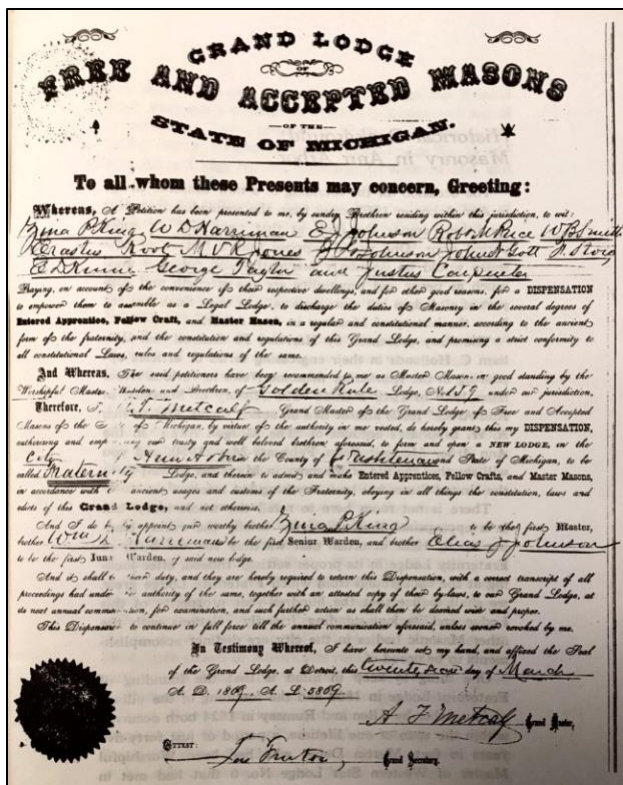 GRAND LODGE
OF
FREE AND ACCEPTED MASONS
OF THE
STATE OF MICHIGAN.
To all whom these Presents may concern, Greeting:
Whereas, A Petition has been presented to me, by sundry Brethren residing within this jurisdiction, to wit:
Zina P. King W D Harriman E J Johnson Robt M Rice W B Smith
Erastus Root M V R Jones Johnson John N Gott
E D Kinne George Taylor and Justus Carpenter
Praying, on account of the convenience of their respective dwellings, and for other good reasons, for a DISPENSATION
to empower them to assemble as a Legal Lodge, to discharge the duties of Masonry in the several degrees of
Entered Apprentice, Fellow Craft, and Master Mason, in a regular and constitutional manner, according to the ancient
form of the fraternity, and the constitution and regulations of this Grand Lodge, and promising a strict conformity to
all constitutional Laws, rules and regulations of the same.
And Whereas, The said petitioners have been recommended to me as Master Masons in good standing by the
Worshipful Master, Wardens and Brethren, of Golden Rule Lodge, No. 159 under our jurisdiction,
Therefore, I F. Metcalf Grand Master of the Grand Lodge of Free and Accepted
Masons of the S of Michigan, by virtue of the authority in me vested, do hereby grant this my DISPENSATION,
authorizing and emp ing our trusty and well beloved brethren aforesaid, to form and open a NEW LODGE, in the
City Ann Arbor in the County of Washtenaw and State of Michigan, to be
called Fraternity Lodge, and therein to admit and make Entered Apprentices, Fellow Crafts, and Master Masons,
in accordance with ancient usages and customs of the Fraternity, obeying in all things the constitution, laws and
edicts of this Grand Lodge, and not otherwise.
And I do appoint our worthy brother Zina P. King to be the first Master,
brother Wm D Harriman be the first Senior Warden, and brother Elias J Johnson
to be the first Junior Warden, of said new lodge.
And it shall duty, and they are hereby required to return this Dispensation, with a correct transcript of all
proceedings had under authority of the same, together with an attested copy of their by-laws, to our Grand Lodge, at
its next annual commu tion, for examination, and such further action as shall then be deemed wise and proper.
This Dispensa to continue in full force till the annual communication aforesaid, unless sooner revoked by me.
In Testimony Whereof, I have hereunto set my hand, and affixed the Seal
of the Grand Lodge, at Detroit, this twenty day of March
A. D. 1869. A. L. 5869.
A F Metcalf Grand Master,
ATTEST:
Fenton, Grand Secretary.